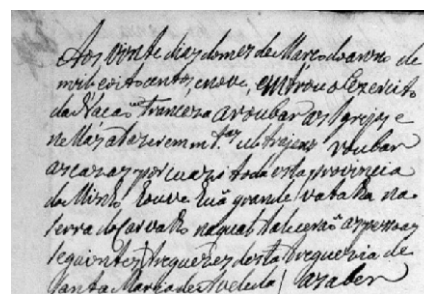 Aos vinte dias do mes de Março do anno de
mil oito centos, e nove, entrou o Exercito
da Nação Franceza a roubar as Igrejas e
nellas fazerem m.tas
as cazas por cuazi toda esta provincia
do Minho houve huã grande batalha na
Serra do Carvalho na qual falecerão as pessoas
seguintes freguezes desta freguezia de
Santa Maria de Aveleda / a saber